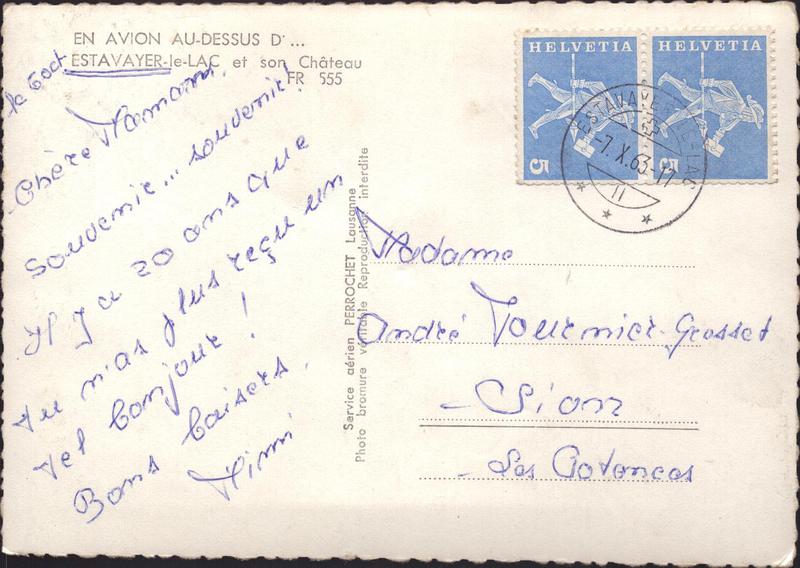 EN AVION AU-DESSUS D'...
ESTAVAYER-le-LAC et son Château
FR 555
Chère Maman.
Souvenir... souvenir!
Il y a 20 ans que
tu n'as plus reçu un
tel bonjour!
Bons baisers.
Mimi
Service aérien PERROCHET Lausanne
Photo bromure véritable Reproduction interdite
HELVETIA
5
HELVETIA
5
ESTAVAYER-LE-LAC
-7.X.63-17
11
Madame
André Tournier-Grosset
Sion
Les Potences